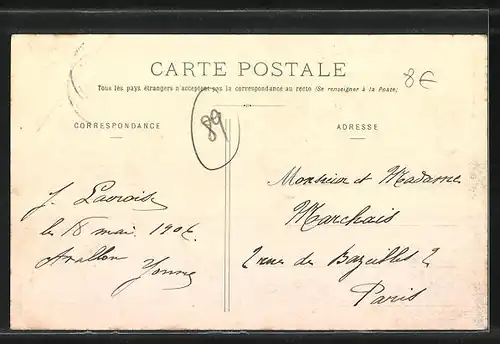 CARTE POSTALE
8€
Tous les pays étrangers n'acceptent pas la correspondance au recto (Se renseigner à la Poste)
89
CORRESPONDANCE
ADRESSE
J. Lacroix
le 18 mai 1906
Avallon Yonne
Monsieur et Madame
Marchais
2 rue de Bazeilles 2
Paris